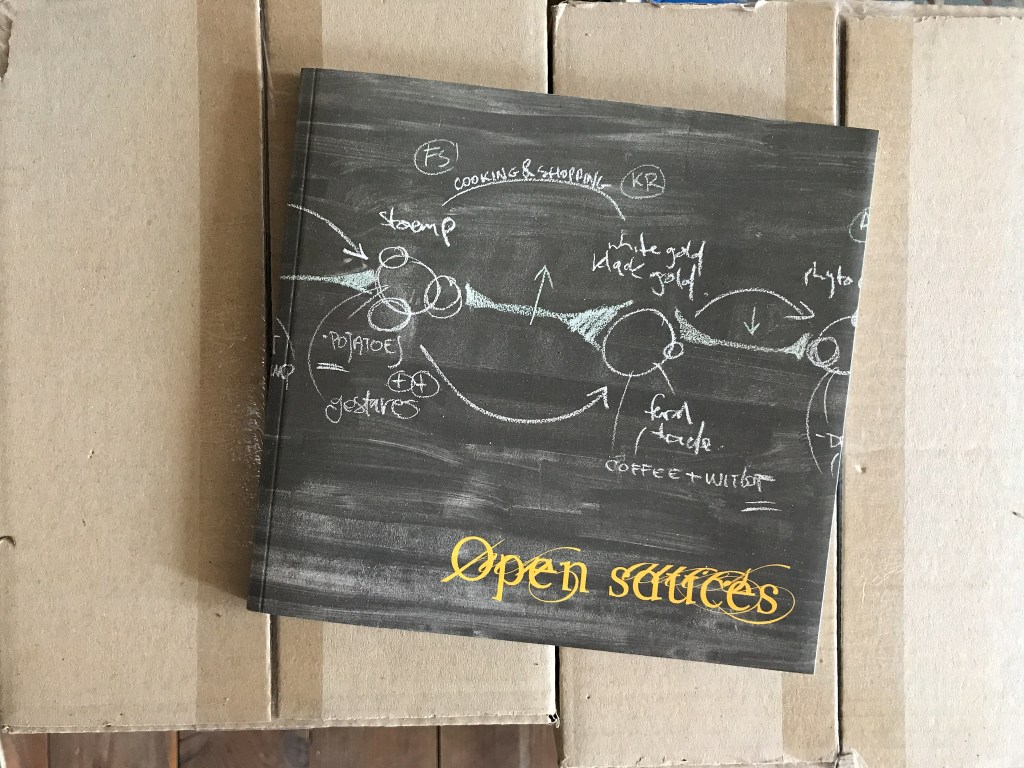 FS
COOKING & SHOPPING
KR
stoemp
white gold
black gold
phyto
- POTATOES
++
gestares
fair
trade
COFFEE + WITLOF
Open sauces